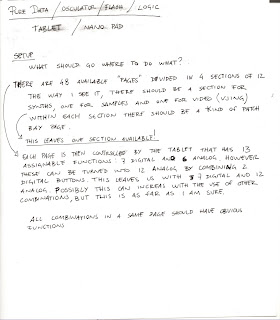 PURE DATA / OSCULATOR / FLASH / LOGIC
TABLET / NANO PAD
SETUP
WHAT SHOULD GO WHERE TO DO WHAT?
THERE ARE 48 AVAILABLE "PAGES" DEVIDED IN 4 SECTIONS OF 12
THE WAY I SEE IT, THERE SHOULD BE A SECTION FOR
SYNTHS, ONE FOR SAMPLES AND ONE FOR VIDEO (VJING)
WITHIN EACH SECTION THERE SHOULD BE A KIND OF PATCH
BAY PAGE.
THIS LEAVES ONE SECTION AVAILABLE!
EACH PAGE IS THEN CONTROLLED BY THE TABLET THAT HAS 13
ASSIGNABLE FUNCTIONS: 7 DIGITAL AND 6 ANALOG. HOWEVER
THESE CAN BE TURNED INTO 12 ANALOG BY COMBINING 2
DIGITAL BUTTONS. THIS LEAVES US WITH 7 DIGITAL AND 12
ANALOG. POSSIBLY THIS CAN INCREAS WITH THE USE OF OTHER
COMBINATIONS, BUT THIS IS AS FAR AS I AM SURE.
ALL COMBINATIONS IN A SAME PAGE SHOULD HAVE OBVIOUS
FUNCTIONS